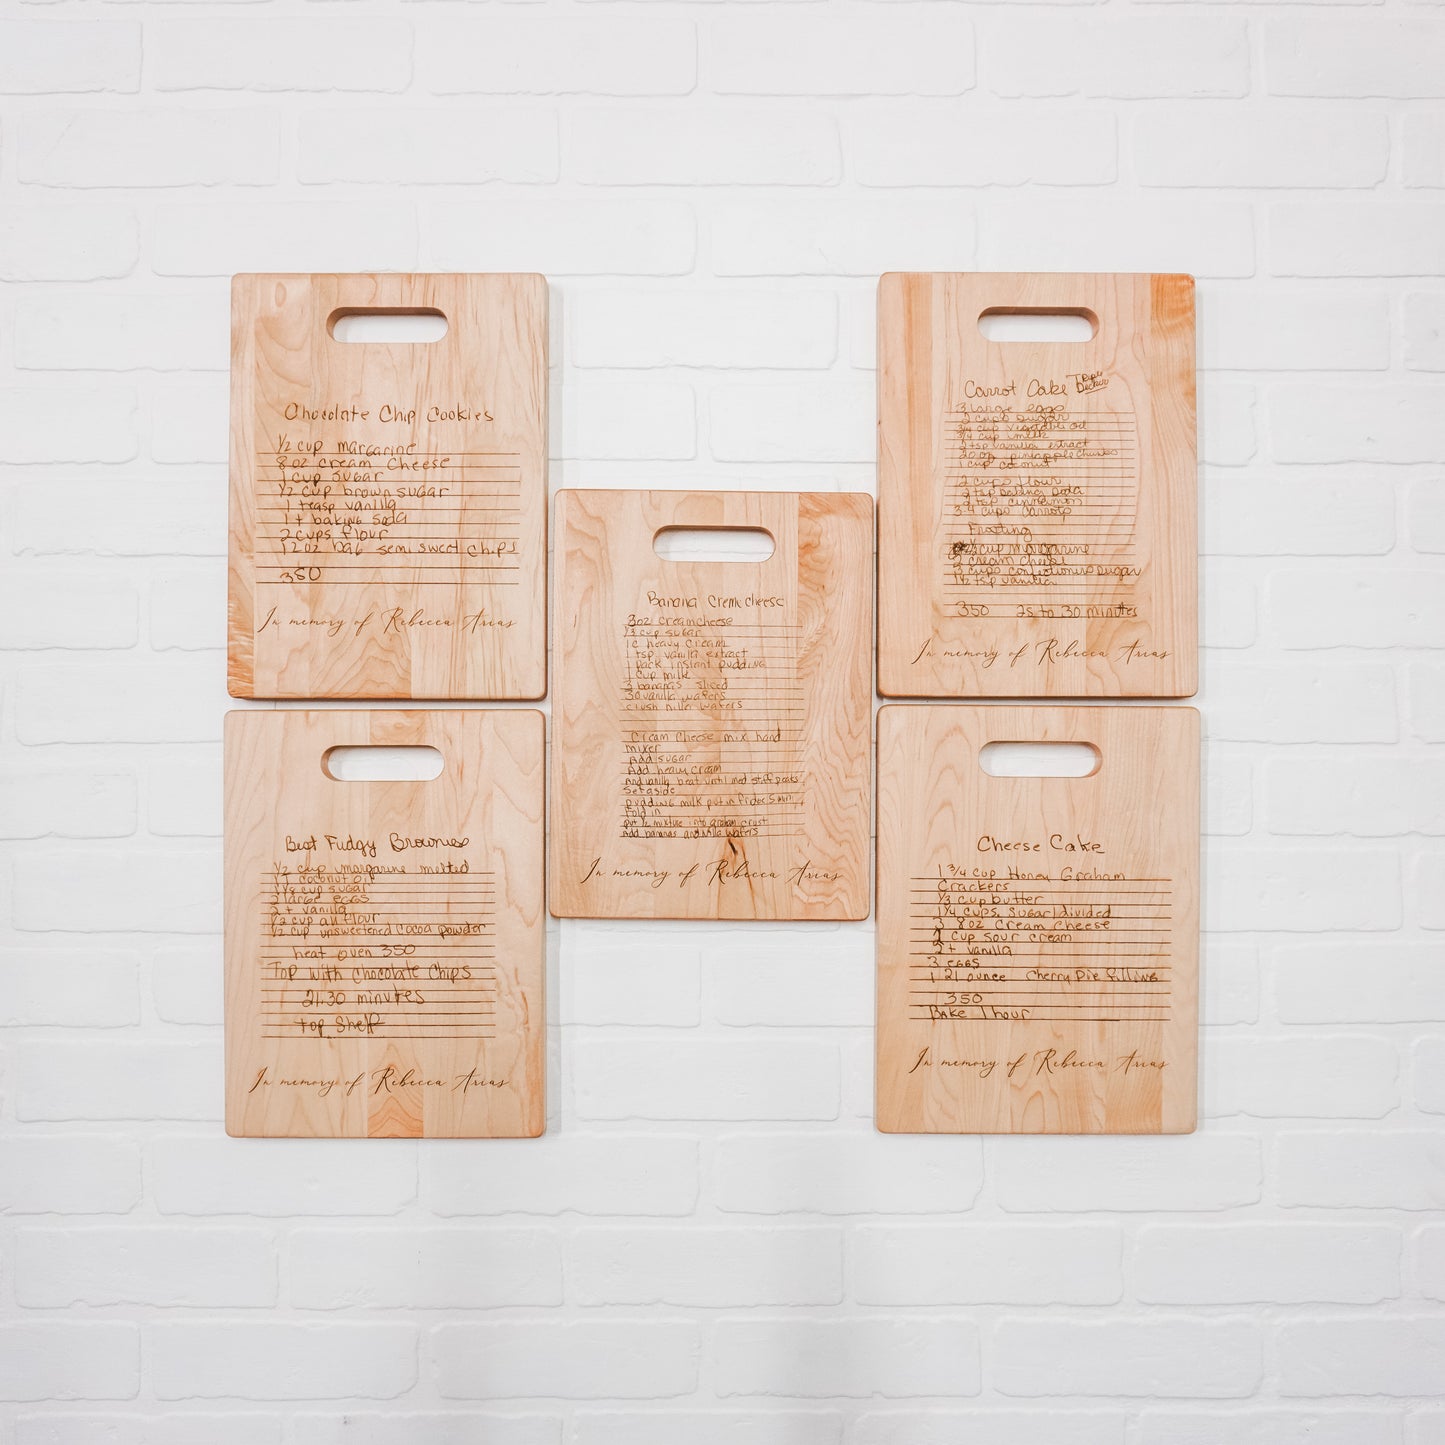 Chocolate Chip Cookies
1/2 cup margarine
8 oz cream cheese
1 cup sugar
1/2 cup brown sugar
1 teasp vanilla
1 t baking soda
2 cups flour
12 oz bag semi sweet chips
350
In memory of Rebecca Arias
Carrot Cake Triple Decker
3 large eggs
2 cups sugar
3/4 cup vegetable oil
3/4 cup milk
2 tsp vanilla extract
20 oz pineapple chunks
1 cup coconut
2 cups flour
2 tsp baking soda
2 tsp cinnamon
3-4 cups carrots
Frosting
cup margarine
2 cream cheese
3 cups confectioners sugar
1 1/2 tsp vanilla
350 25 to 30 minutes
In memory of Rebecca Arias
Banana Cremcheese
8oz creamcheese
1/3 cup sugar
1 c heavy cream
1 tsp vanilla extract
1 pack instant pudding
1 cup milk
3 bananas sliced
30 vanilla wafers
crush nilla wafers
Cream cheese mix hand
mixer
Add sugar
Add heavy cream
And vanilla beat until med stiff peaks
Set aside
pudding milk put in fridge 5 min
Fold in
put 1/2 mixture into graham crust
Add bananas and nilla wafers
In memory of Rebecca Arias
Best Fudgy Brownies
1/2 cup margarine melted
1 T coconut oil
1 1/8 cup sugar
2 large eggs
2 t vanilla
1/2 cup all flour
1/2 cup unsweetened cocoa powder
heat oven 350
Top with chocolate chips
21.30 minutes
top shelf
In memory of Rebecca Arias
Cheese Cake
1 3/4 cup Honey Graham
Crackers
1/3 cup butter
1 1/4 cups. sugar/divided
3 8oz cream cheese
1 cup sour cream
2 t vanilla
3 eggs
1 21 ounce cherry pie filling
350
Bake 1 hour
In memory of Rebecca Arias